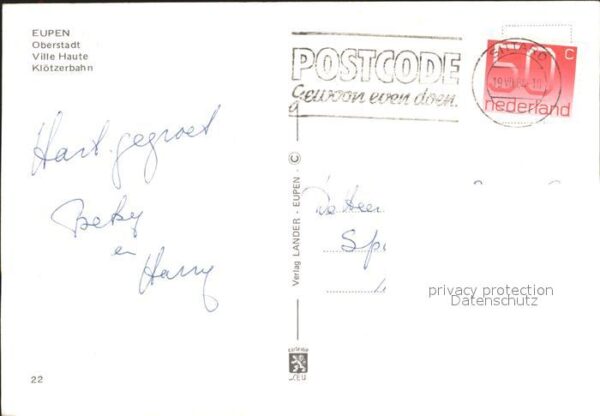 EUPEN
Oberstadt
Ville Haute
Klötzerbahn
POSTCODE
gewoon even doen.
50 c
nederland
Hart. gegroet
Beky
en
Harry
Verlag LANDER - EUPEN - ©
De Heer
Sp
privacy protection
Datenschutz
22